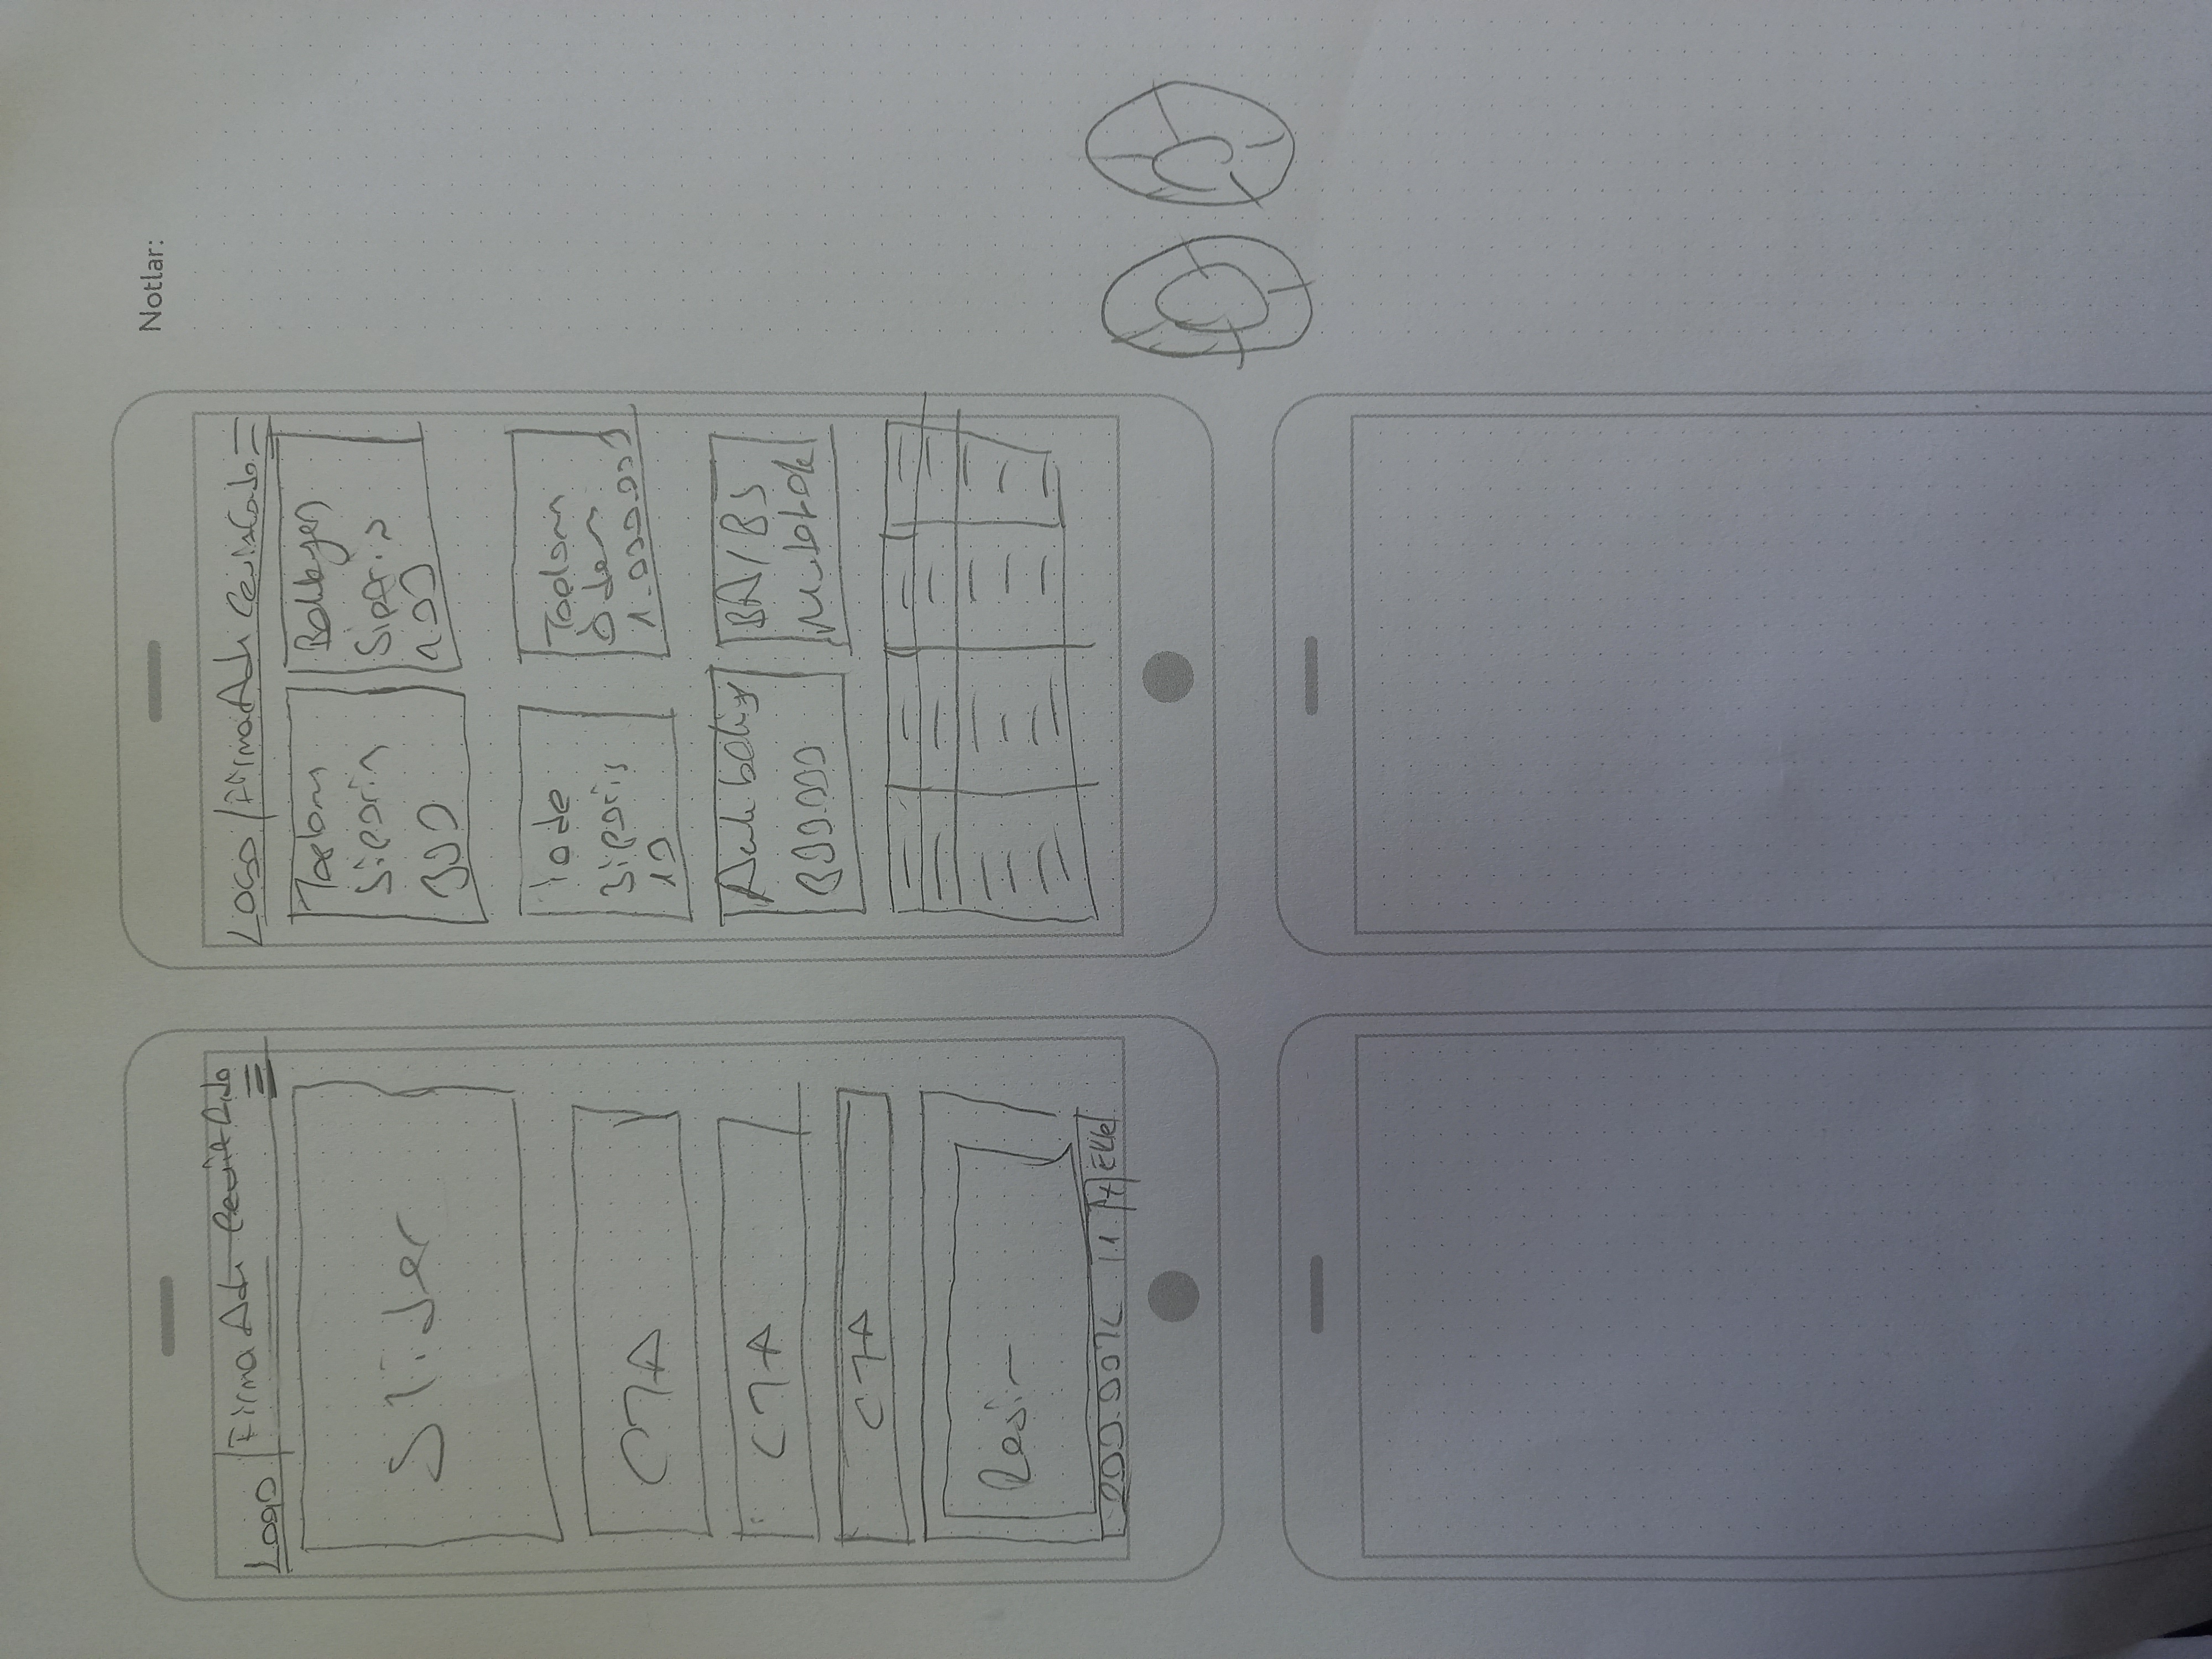 Logo | Firma Adı
Slider
CTA
CTA
CTA
Resim
200.00TL 1 + Ekle
Logo / Firma Adı
Toplam
Sipariş
300
Bekleyen
Sipariş
100
İade
Sipariş
10
Toplam
Ödem
1.000.000
Açık bakiye
800.000
BA/BS
Mutabak
Notlar: